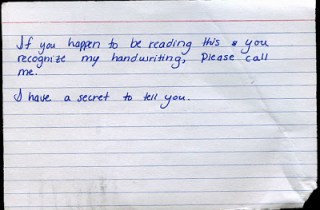 If you happen to be reading this & you
recognize my handwriting, please call
me.
I have a secret to tell you.